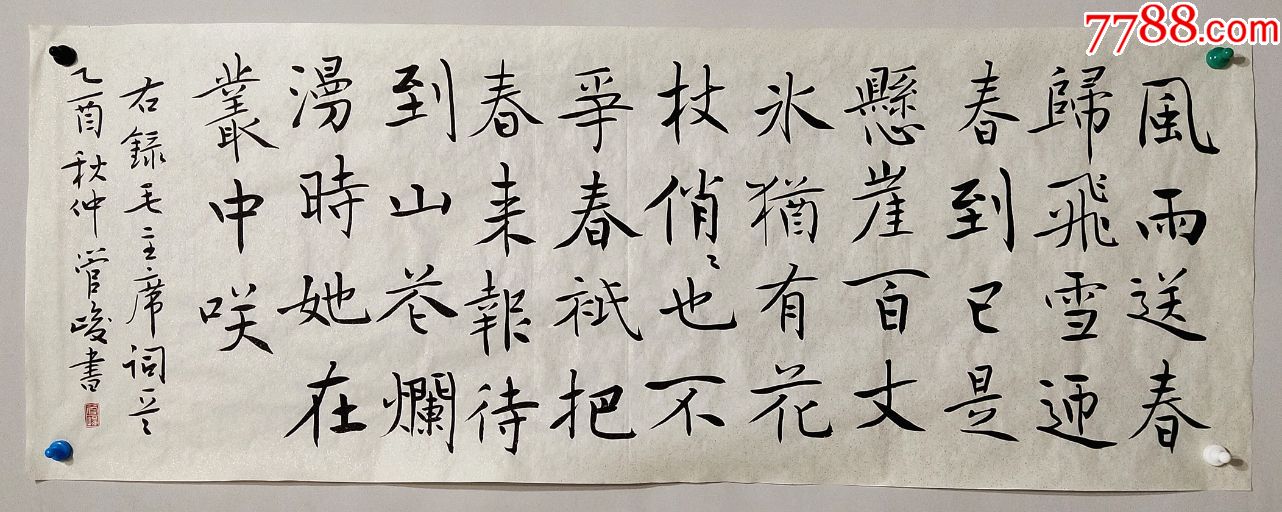 7788.com
風雨送春
歸飛雪迎
春到已是
懸崖百丈
氷猶有花
枝俏〻也不
爭春祇把
春来報待
到山花爛
漫時她在
叢中咲
右録毛主席詞一首
乙酉秋仲管峻書